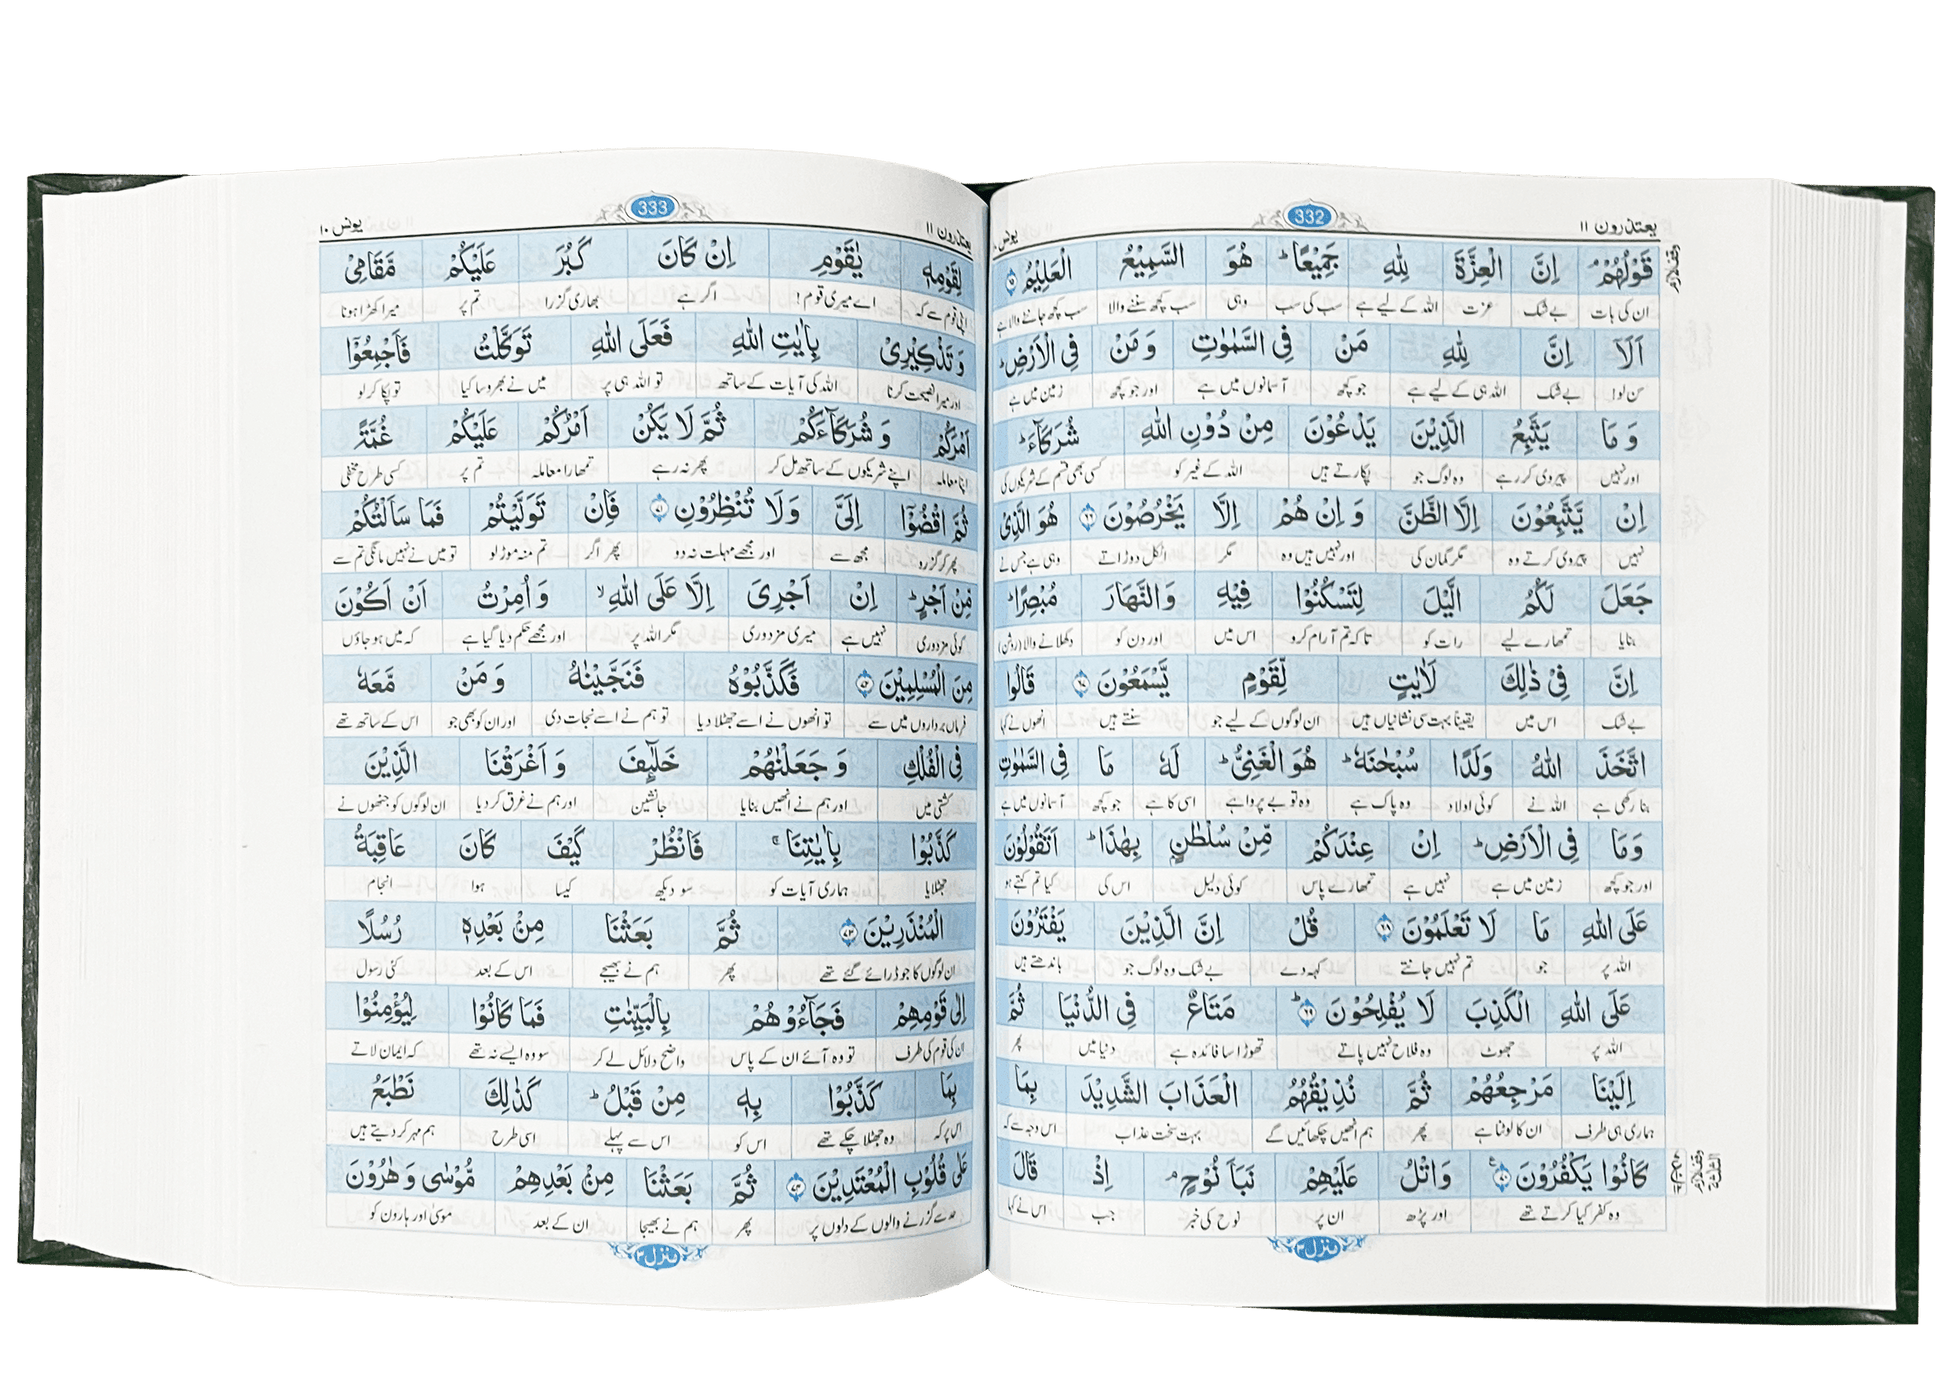 یعتذرون ۱۱ 332 یونس ۱۰
قَوْلُهُمْ ۘ اِنَّ الْعِزَّةَ لِلّٰهِ جَمِيْعًا ؕ هُوَ السَّمِيْعُ الْعَلِيْمُ ۶۵
ان کی بات بے شک عزت اللہ کے لیے ہے سب کی سب وہی سب کچھ سننے والا سب کچھ جاننے والا ہے
اَلَاۤ اِنَّ لِلّٰهِ مَنْ فِى السَّمٰوٰتِ وَ مَنْ فِى الْاَرْضِ ؕ
سن لو! بے شک اللہ ہی کے لیے ہے جو کچھ آسمانوں میں ہے اور جو کچھ زمین میں ہے
وَ مَا يَتَّبِعُ الَّذِيْنَ يَدْعُوْنَ مِنْ دُوْنِ اللّٰهِ شُرَكَآءَ ؕ
اور نہیں پیروی کر رہے وہ لوگ جو پکارتے ہیں اللہ کے غیر کو کسی بھی قسم کے شریکوں کی
اِنْ يَّتَّبِعُوْنَ اِلَّا الظَّنَّ وَ اِنْ هُمْ اِلَّا يَخْرُصُوْنَ ۶۶ هُوَ الَّذِىْ
نہیں پیروی کرتے وہ مگر گمان کی اور نہیں ہیں وہ مگر اٹکل دوڑاتے وہی ہے جس نے
جَعَلَ لَكُمُ الَّيْلَ لِتَسْكُنُوْا فِيْهِ وَ النَّهَارَ مُبْصِرًا ؕ
بنایا تمھارے لیے رات کو تاکہ تم آرام کرو اس میں اور دن کو دکھلانے والا (روشن)
اِنَّ فِىْ ذٰلِكَ لَاٰيٰتٍ لِّقَوْمٍ يَّسْمَعُوْنَ ۶۷ قَالُوا
بے شک اس میں یقیناً بہت سی نشانیاں ہیں ان لوگوں کے لیے جو سنتے ہیں انھوں نے کہا
اتَّخَذَ اللّٰهُ وَلَدًا سُبْحٰنَهٗ ؕ هُوَ الْغَنِىُّ ؕ لَهٗ مَا فِى السَّمٰوٰتِ
بنا رکھی ہے اللہ نے کوئی اولاد وہ پاک ہے وہ تو بے پروا ہے اسی کا ہے جو کچھ آسمانوں میں ہے
وَ مَا فِى الْاَرْضِ ؕ اِنْ عِنْدَكُمْ مِّنْ سُلْطٰنٍۭ بِهٰذَا ؕ اَتَقُوْلُوْنَ
اور جو کچھ زمین میں ہے نہیں ہے تمھارے پاس کوئی دلیل اس کی کیا تم کہتے ہو
عَلَى اللّٰهِ مَا لَا تَعْلَمُوْنَ ۶۸ قُلْ اِنَّ الَّذِيْنَ يَفْتَرُوْنَ
اللہ پر جو تم نہیں جانتے کہہ دے بے شک وہ لوگ جو باندھتے ہیں
عَلَى اللّٰهِ الْكَذِبَ لَا يُفْلِحُوْنَ ؕ ۶۹ مَتَاعٌ فِى الدُّنْيَا ثُمَّ
اللہ پر جھوٹ وہ فلاح نہیں پاتے تھوڑا سا فائدہ ہے دنیا میں پھر
اِلَيْنَا مَرْجِعُهُمْ ثُمَّ نُذِيْقُهُمُ الْعَذَابَ الشَّدِيْدَ بِمَا
ہماری ہی طرف ان کا لوٹنا ہے پھر ہم انھیں چکھائیں گے بہت سخت عذاب اس وجہ سے کہ
كَانُوْا يَكْفُرُوْنَ ۷۰ وَ اتْلُ عَلَيْهِمْ نَبَاَ نُوْحٍ ۘ اِذْ قَالَ
وہ کفر کیا کرتے تھے اور پڑھ ان پر نوح کی خبر جب اس نے کہا
منزل ۳
یعتذرون ۱۱ 333 یونس ۱۰
لِقَوْمِهٖ يٰقَوْمِ اِنْ كَانَ كَبُرَ عَلَيْكُمْ مَّقَامِىْ
اپنی قوم سے کہ اے میری قوم! اگر ہے بھاری گزرا تم پر میرا کھڑا ہونا
وَ تَذْكِيْرِىْ بِاٰيٰتِ اللّٰهِ فَعَلَى اللّٰهِ تَوَكَّلْتُ فَاَجْمِعُوْۤا
اور میرا نصیحت کرنا اللہ کی آیات کے ساتھ تو اللہ ہی پر میں نے بھروسا کیا تو پکا کر لو
اَمْرَكُمْ وَ شُرَكَآءَكُمْ ثُمَّ لَا يَكُنْ اَمْرُكُمْ عَلَيْكُمْ غُمَّةً
اپنا معاملہ اپنے شریکوں کے ساتھ مل کر پھر نہ رہے تمھارا معاملہ تم پر کسی طرح مخفی
ثُمَّ اقْضُوْۤا اِلَىَّ وَ لَا تُنْظِرُوْنِ ۷۱ فَاِنْ تَوَلَّيْتُمْ فَمَا سَاَلْتُكُمْ
پھر کر گزرو مجھ سے اور مجھے مہلت نہ دو پھر اگر تم منہ موڑ لو تو میں نے نہیں مانگی تم سے
مِّنْ اَجْرٍ ؕ اِنْ اَجْرِىَ اِلَّا عَلَى اللّٰهِ ۙ وَ اُمِرْتُ اَنْ اَكُوْنَ
کوئی مزدوری نہیں ہے میری مزدوری مگر اللہ پر اور مجھے حکم دیا گیا ہے کہ میں ہو جاؤں
مِنَ الْمُسْلِمِيْنَ ۷۲ فَكَذَّبُوْهُ فَنَجَّيْنٰهُ وَ مَنْ مَّعَهٗ
فرماں برداروں میں سے تو انھوں نے اسے جھٹلا دیا تو ہم نے اسے نجات دی اور ان کو بھی جو اس کے ساتھ تھے
فِى الْفُلْكِ وَ جَعَلْنٰهُمْ خَلٰٓئِفَ وَ اَغْرَقْنَا الَّذِيْنَ
کشتی میں اور ہم نے انھیں بنایا جانشین اور ہم نے غرق کر دیا ان لوگوں کو جنھوں نے
كَذَّبُوْا بِاٰيٰتِنَا ۚ فَانْظُرْ كَيْفَ كَانَ عَاقِبَةُ
جھٹلایا ہماری آیات کو سو دیکھ کیسا ہوا انجام
الْمُنْذَرِيْنَ ۷۳ ثُمَّ بَعَثْنَا مِنْۢ بَعْدِهٖ رُسُلًا
ان لوگوں کا جو ڈرائے گئے تھے پھر ہم نے بھیجے اس کے بعد کئی رسول
اِلٰى قَوْمِهِمْ فَجَآءُوْهُمْ بِالْبَيِّنٰتِ فَمَا كَانُوْا لِيُؤْمِنُوْا
ان کی قوم کی طرف تو وہ آئے ان کے پاس واضح دلائل لے کر سو وہ ایسے نہ تھے کہ ایمان لاتے
بِمَا كَذَّبُوْا بِهٖ مِنْ قَبْلُ ؕ كَذٰلِكَ نَطْبَعُ
اس پر کہ وہ جھٹلا چکے تھے اس کو اس سے پہلے اسی طرح ہم مہر کر دیتے ہیں
عَلٰى قُلُوْبِ الْمُعْتَدِيْنَ ۷۴ ثُمَّ بَعَثْنَا مِنْۢ بَعْدِهِمْ مُّوْسٰى وَ هٰرُوْنَ
حد سے گزرنے والوں کے دلوں پر پھر ہم نے بھیجا ان کے بعد موسیٰ اور ہارون کو
منزل ۳